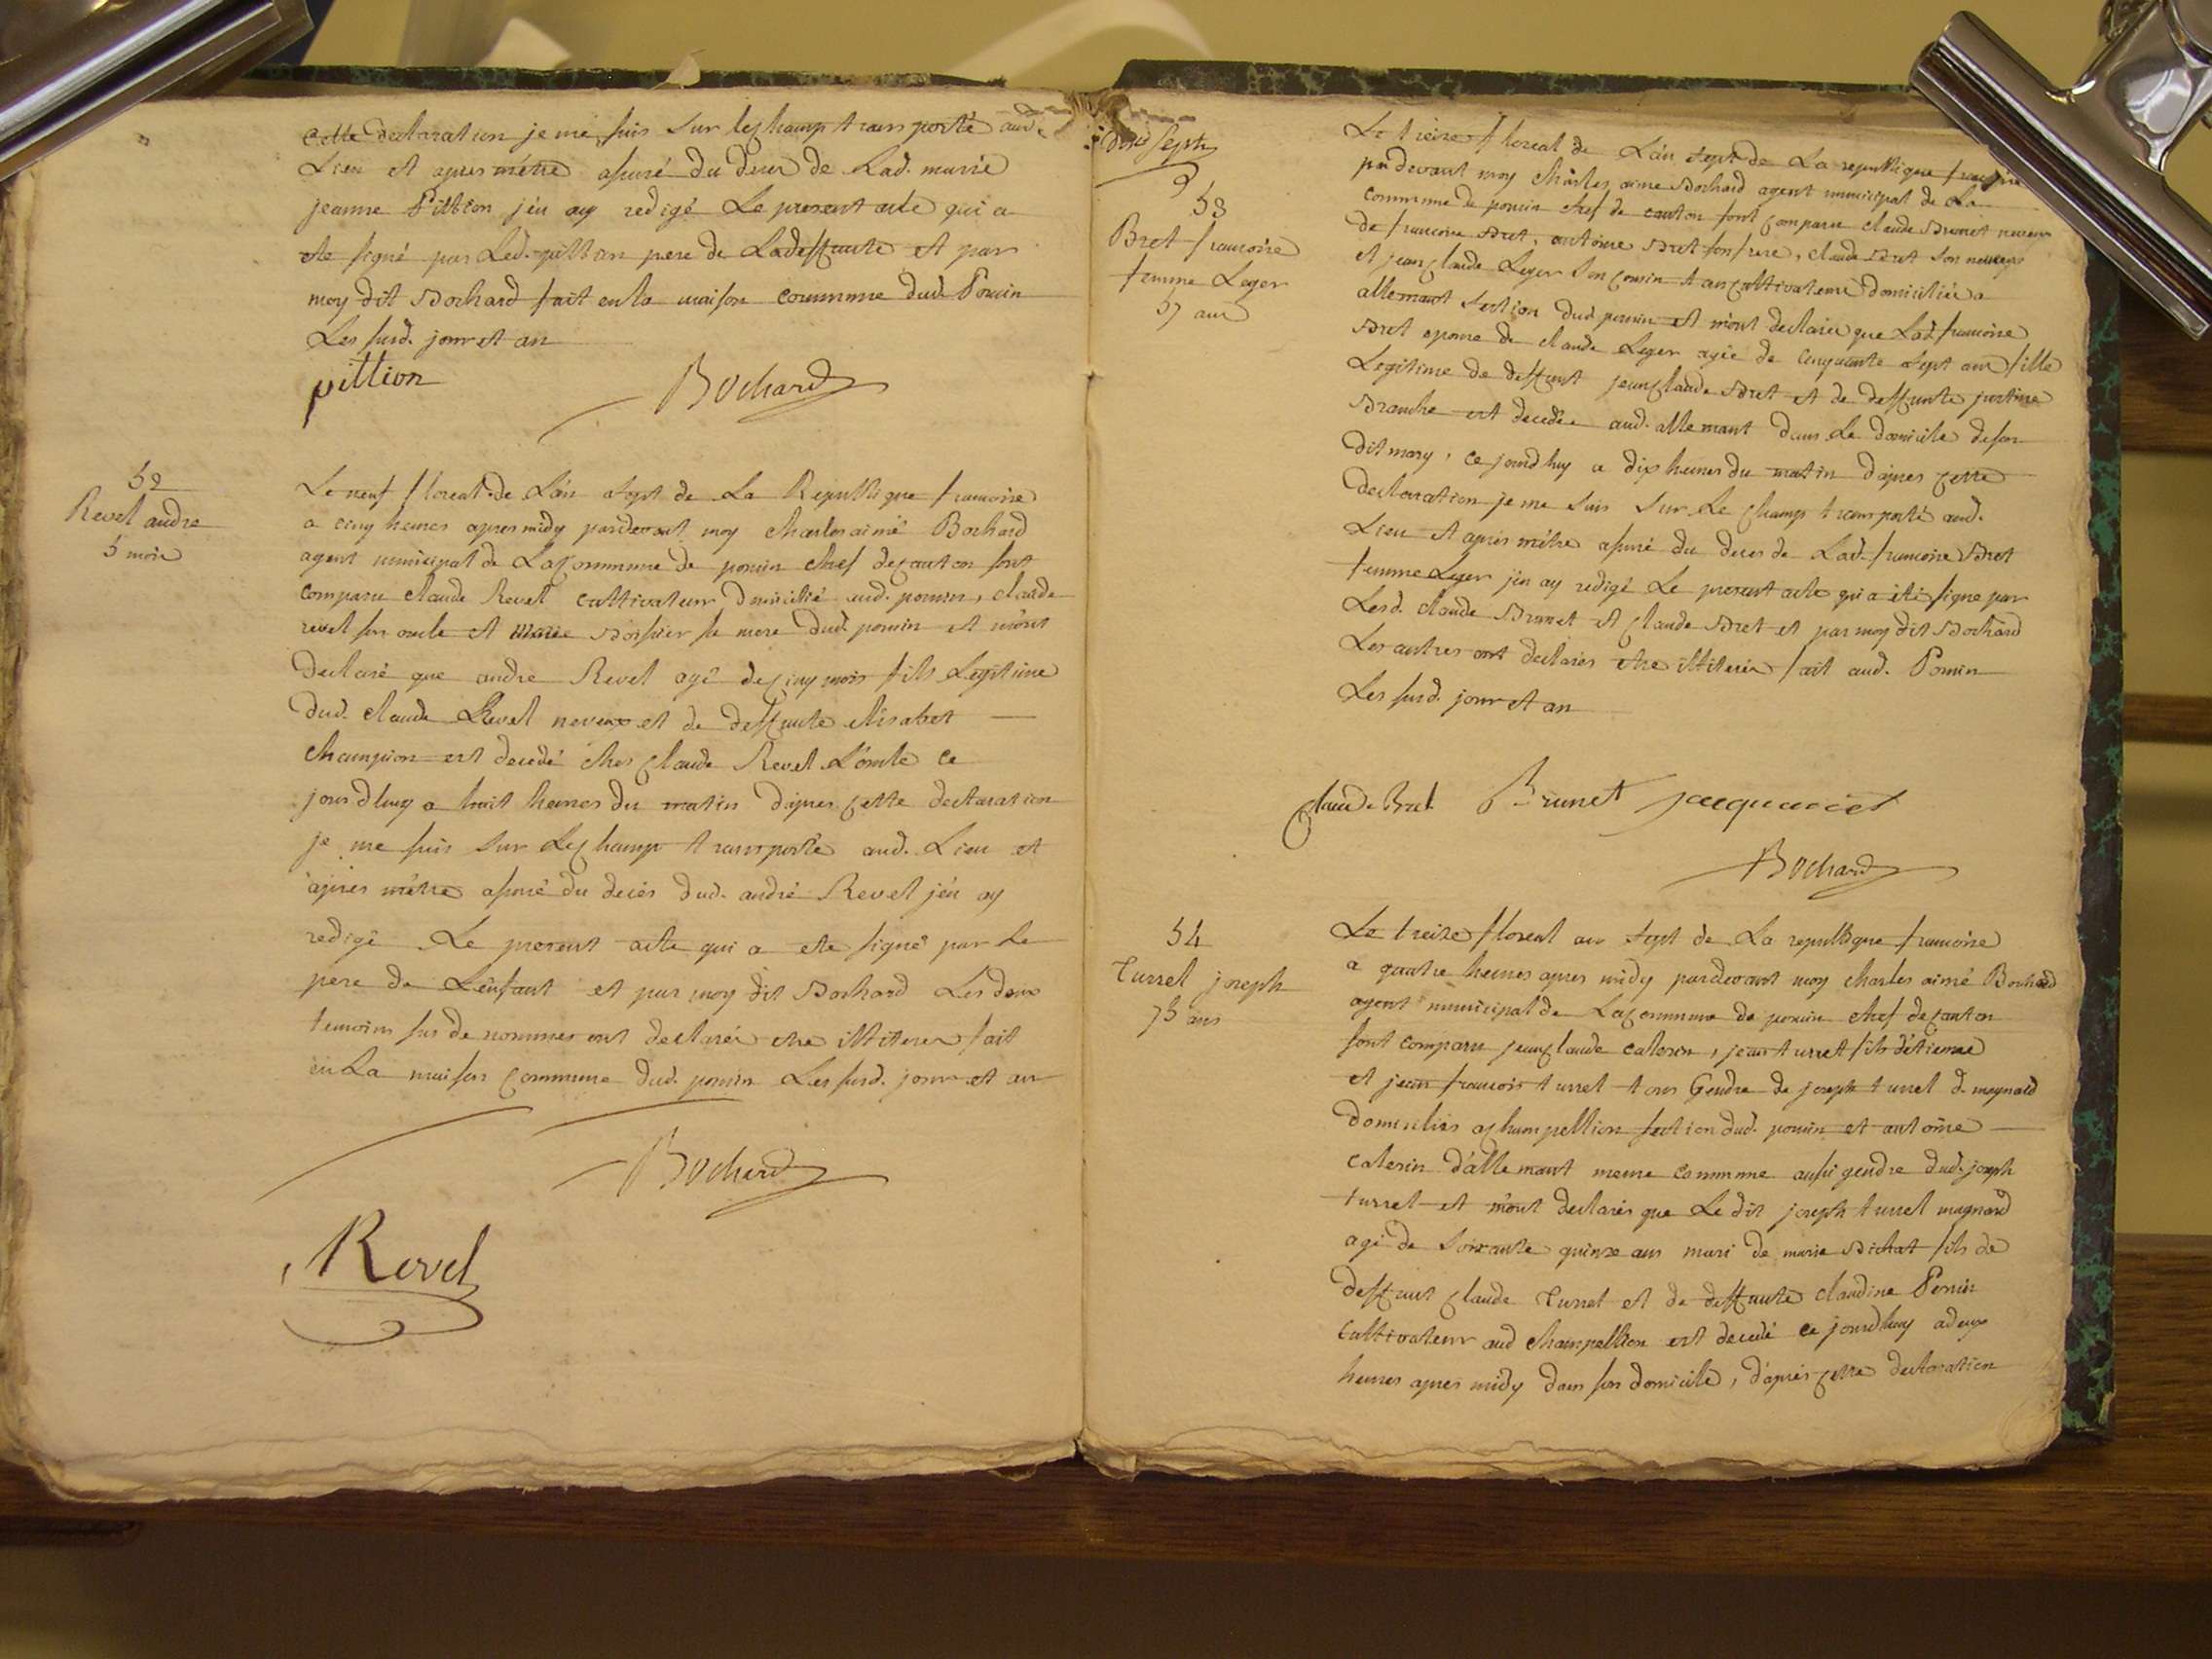 cette declaration je me suis sur lechamp transporté aud.
Lieu et apres métre assuré du deces de Lad. marie
jeanne Pittion jén ay redigé Le present acte qui a
ete signé par Led. pittion pere de Ladeffunte et par
moy dit Bochard fait en la maison commune dud. Poncin
Les susd. jour et an
pittion
Bochard
52
Revel andre
5 mois
Le neuf floreal de Lán sept de La Republique francoise
a cinq heures apres midy pardevant moy charles aimé Bochard
agent municipal de Lacommune de poncin chef decanton sont
comparu claude Revel cultivateur domicilié aud. poncin, claude
revel son oncle et marie sa mere dud. poncin et mónt
declaré que andre Revel agé decinq mois fils Legitime
dud. claude Revel neveux et de deffunte elisabet
champion est decedé ches claude Revel Lóncle ce
jourdhuy a huit heures du matin dápres cette declaration
je me suis sur Lechamp transporté aud. Lieu et
apres métre assuré du decés dud. andré Revel jén ay
redigé Le present acte qui a ete signé par Le
pere de Lénfant et par moy dit Bochard Les deux
temoins sus de nommés ont declarés etre illiterés fait
en La maison commune dud. poncin Les susd. jour et an
Bochard
Revel
dix sept
53
Bret francoise
femme Leger
57 ans
Le treize floreal de Lán sept de La republique francoise
pardevant moy charles aime Bochard agent municipal de La
commune de poncin chef de canton sont comparu claude Brunet neveux
de francoise Bret, antoine Bret son frere, claude Bret son neveux
et jean claude Leger son cousin cultivateurs domiciliés a
allemant section dud. poncin et mónt declarés que Lad. francoise
Bret epouse de claude Leger agée de cinquante sept ans fille
Legitime de deffunt jeanclaude Bret et de deffunte justine
Branche est decedée aud. allemant dans Le domicile deson
dit mary, ce jourdhuy a dix heures du matin dápres cette
declaration je me suis sur Le champ transporté aud.
Lieu et apres métre assuré du deces de Lad. francoise Bret
femme Leger jén ay redigé Le present acte qui a été signe par
Lesd. claude Brunet et claude Bret et par moy dit Bochard
Les autres ont declarés etre illiterés fait aud. Poncin
Les susd. jour et an
Claude Bret Brunet
Bochard
54
Turrel joseph
75 ans
Le treize floreal an sept de La republique francoise
a quatre heures apres midy pardevant moy charles aimé Bochard
agent municipal de Lacommune de poncin chef decanton
sont comparu jeanclaude caterin, jean turrel fils détienne
et jean francois turrel tous Gendre de joseph turrel d. magnard
domiciliés achampellion section dud. poncin et antoine
caterin dállemant meme commune aussi gendre dud. joseph
turrel et mónt declarés que Le dit joseph turrel magnard
agé de soixante quinze ans mari de marie Bichat fils de
deffunt claude Turrel et de deffunte claudine Perrin
cultivateur aud champellion est decedé ce jourdhuy adeux
heures apres midy dans son domicile, dápres cette declaration